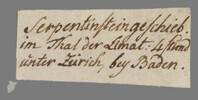 Serpentinsteingeschieb
im Thal der Limat: 4 stund
unter Zürich, bey Baden.